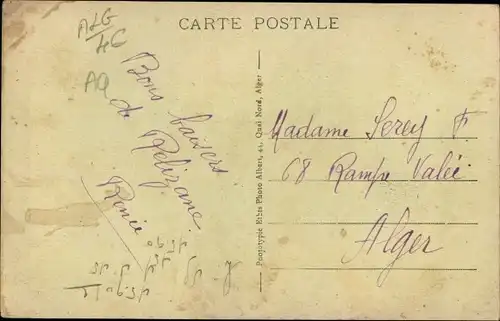 CARTE POSTALE
ALG
46
AQ
Bons baisers
de Relizane
Renée
Madame Serey F.
68 Rampe Valée
Alger
Phototypie Etbts Photo Albert, 41, Quai Nord, Alger